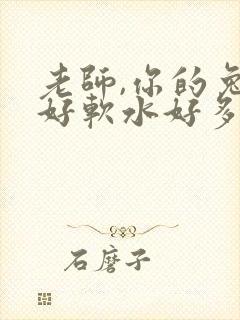 老師,你的兔
好軟水好多
石磨子